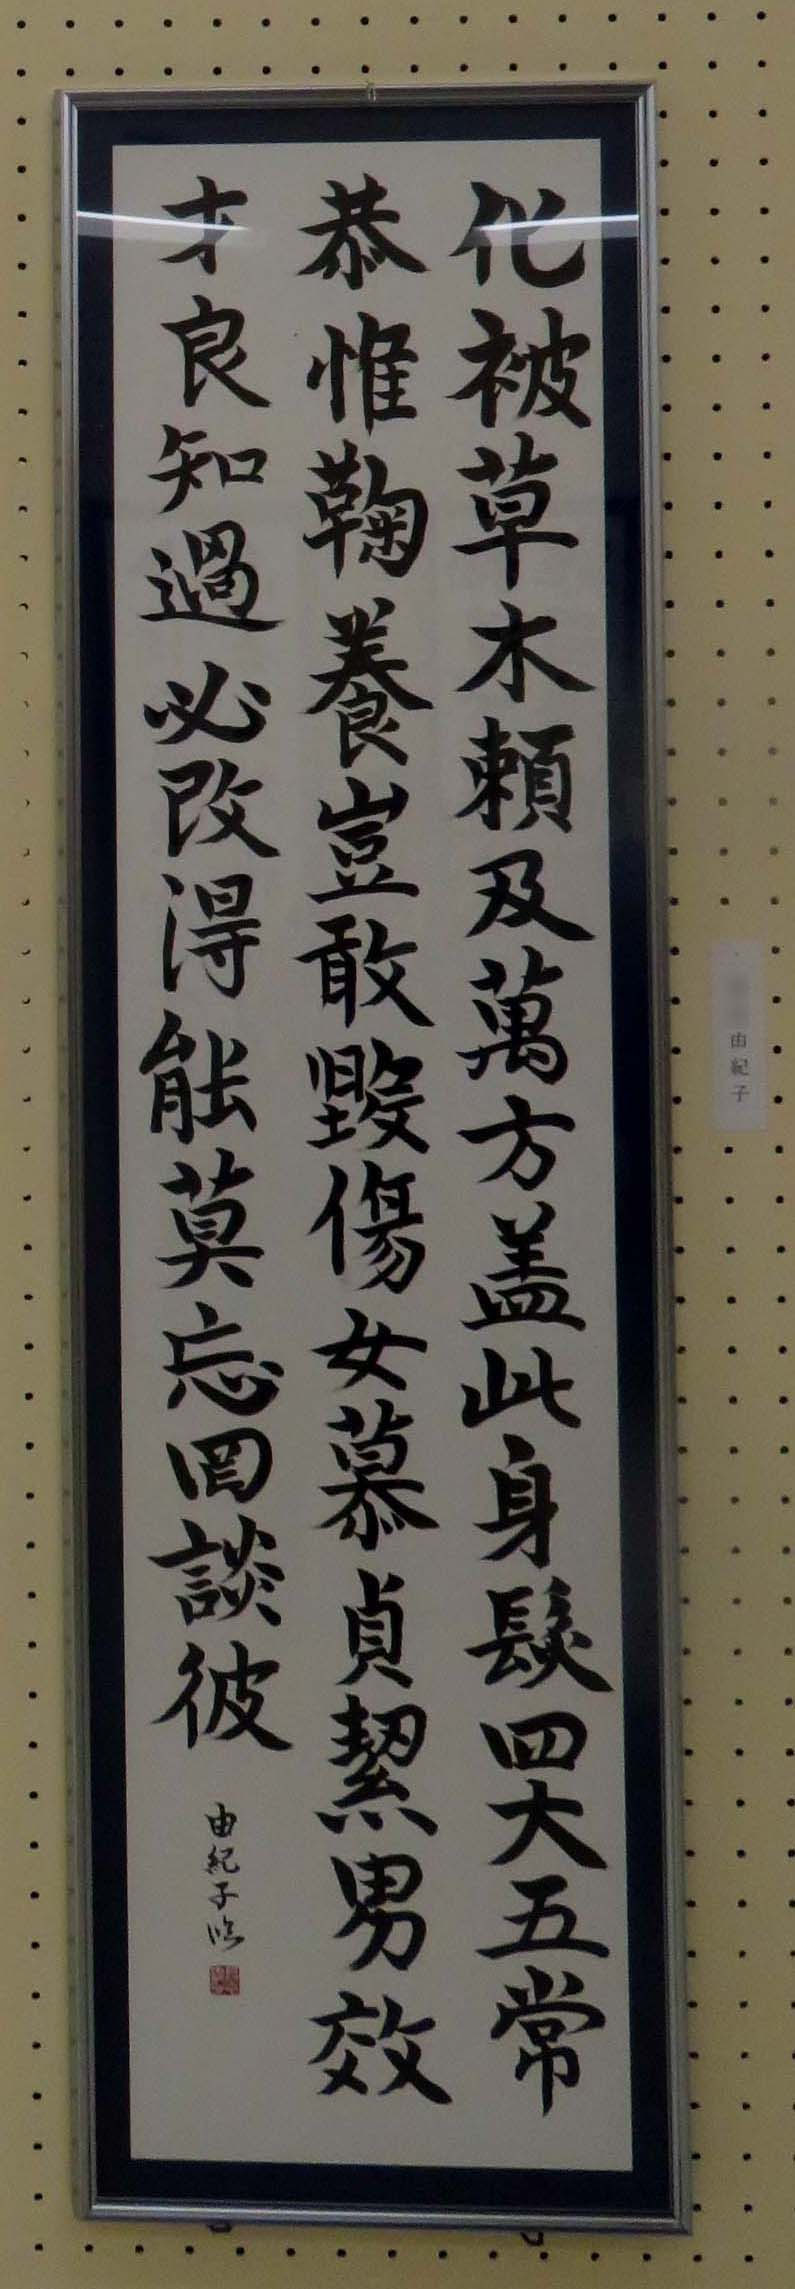 化被草木頼及萬方盖此身髮四大五常
恭惟鞠養豈敢毀傷女慕貞絜男效
才良知過必改得能莫忘罔談彼
由紀子臨
由紀子